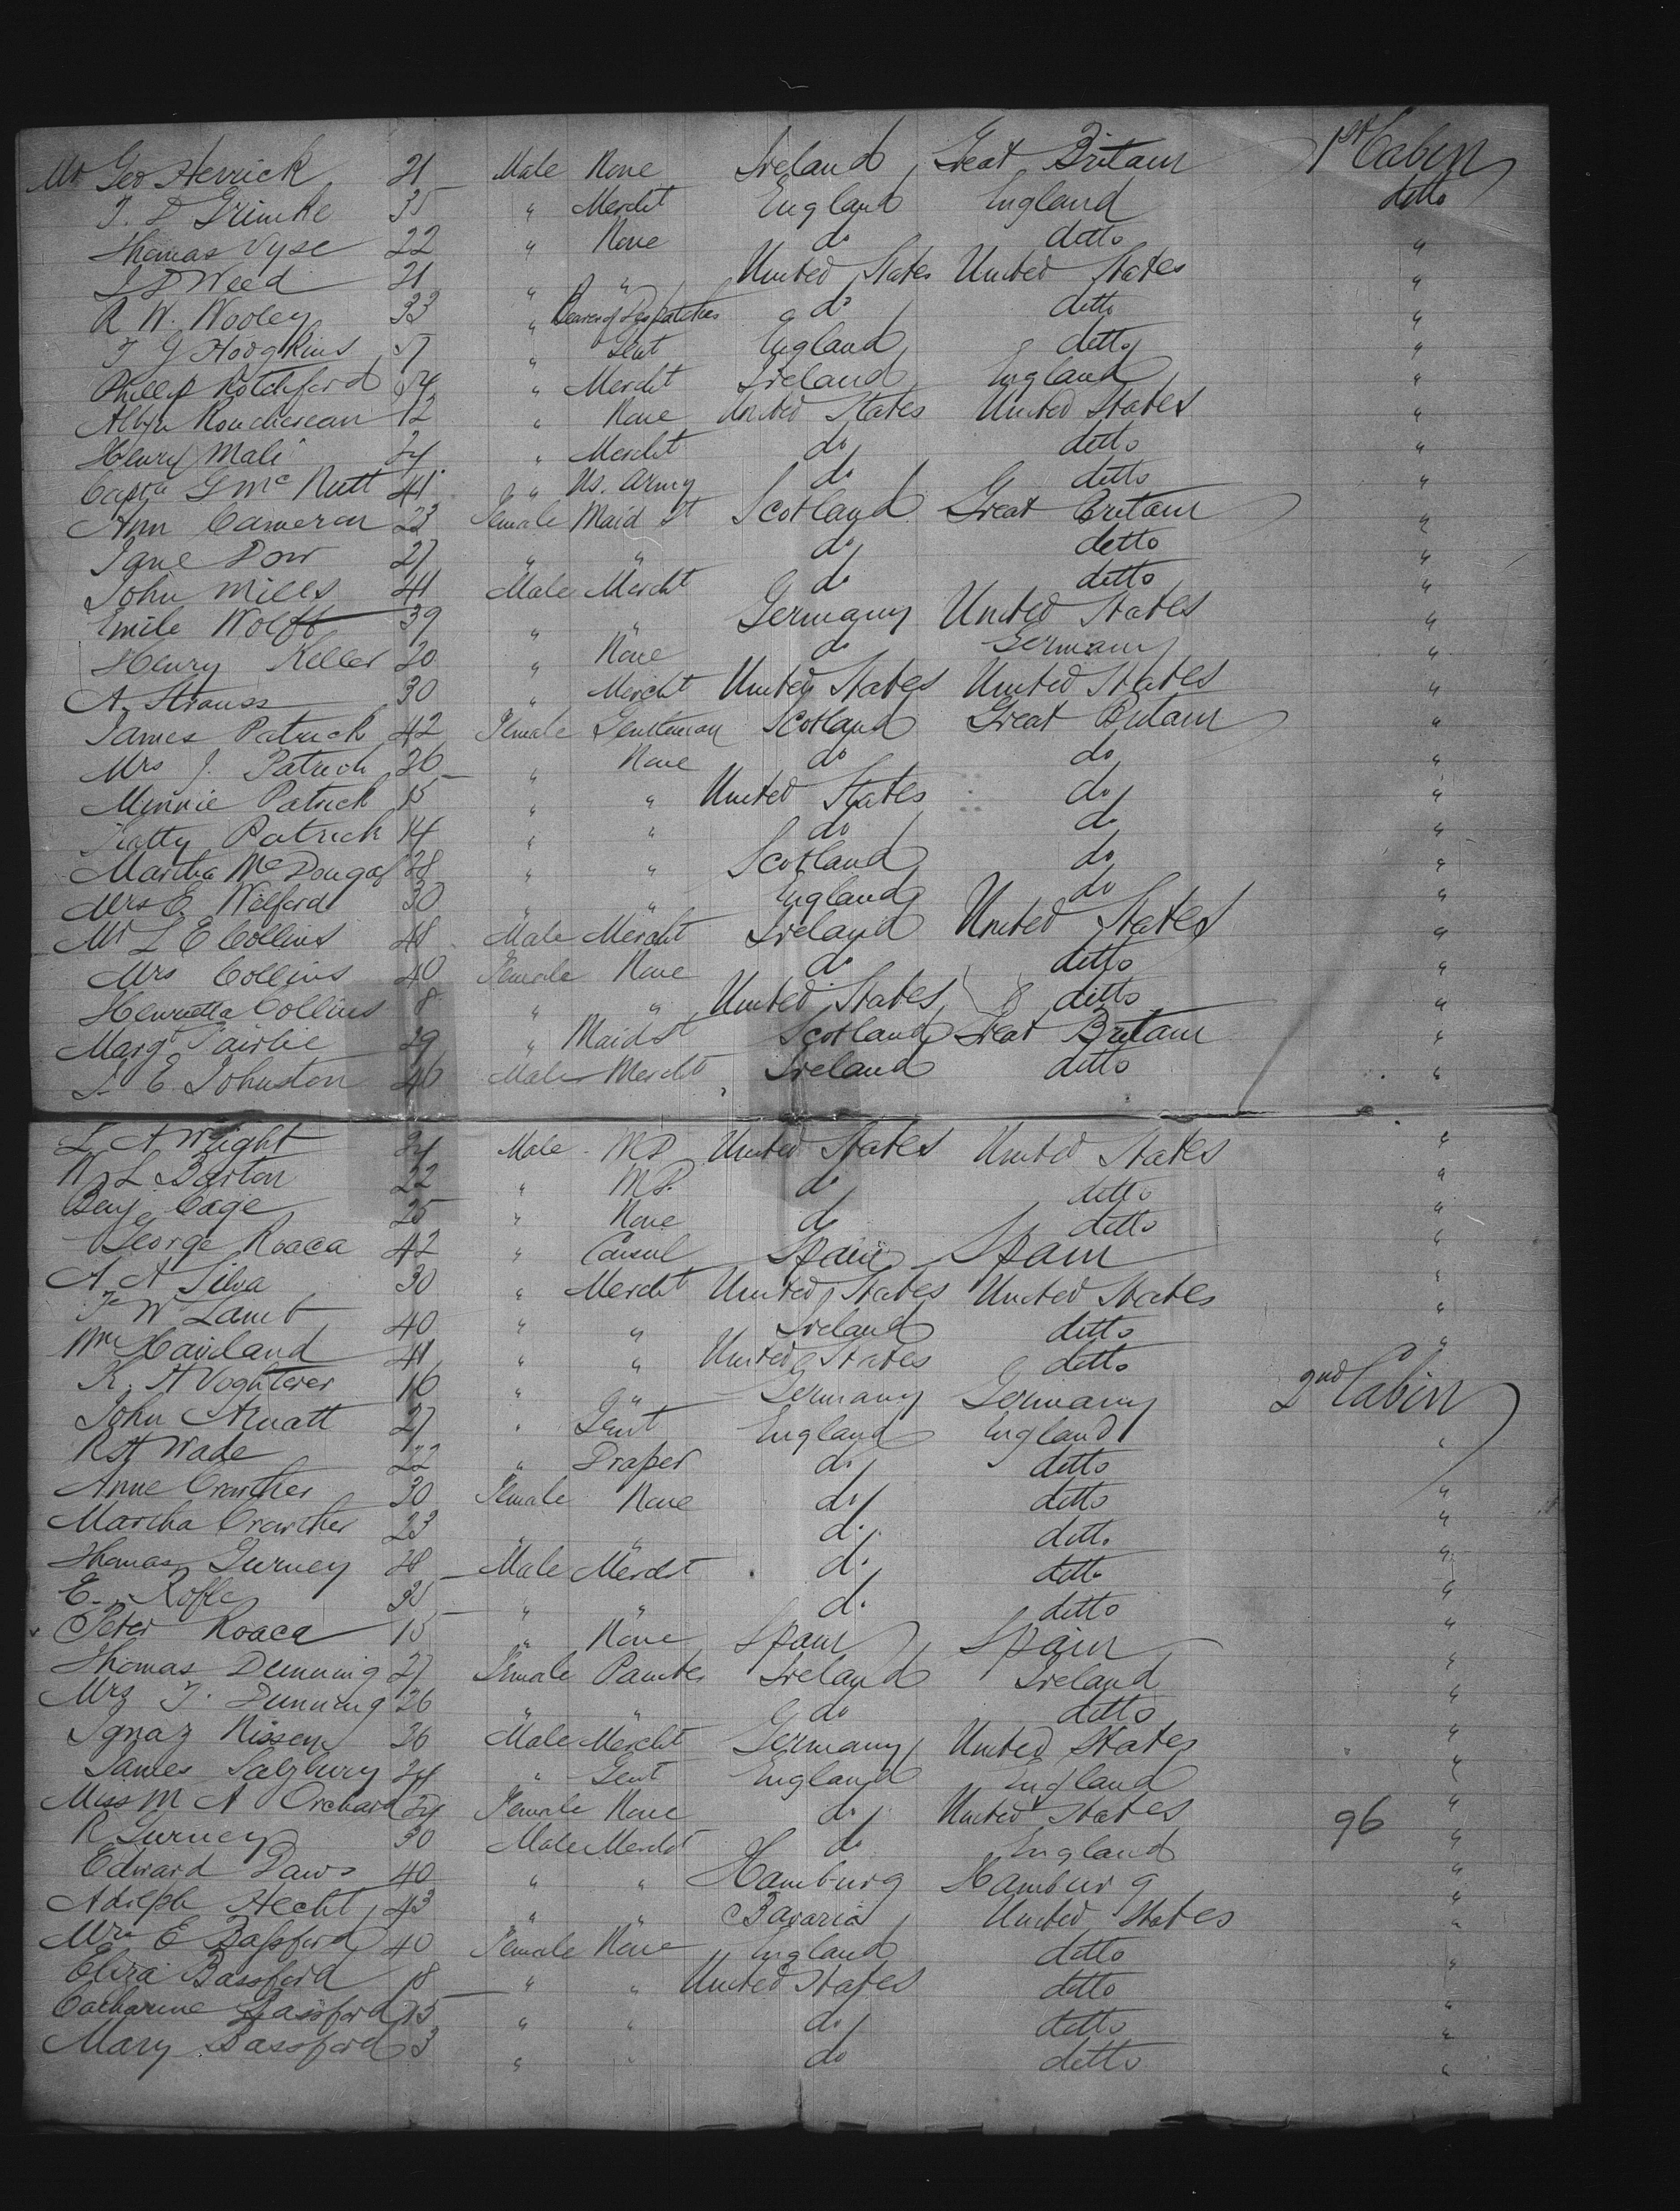 Mr Geo Herrick 21 Male None Ireland Great Britain 1st Cabin
T. D Grimke 35 " Mercht England England ditto
Thomas Vyse 22 " None do ditto "
J D Weed 21 " " United States United States "
R W. Wooley 33 " Bearer of Despatches do ditto "
T J Hodgkins " Gent England ditto "
Phillip Rotchford 54 " Mercht Ireland England "
Albyn 12 " None United States United States "
Henry Mali 24 " Mercht do ditto "
Capta G Mc Nutt 41 " Us. Army do ditto "
Ann Cameron 23 Female Maid St Scotland Great Britain "
Jane Dow 27 " " do ditto "
John Mills 41 Male Mercht do ditto "
Emile Wolff 39 " " Germany United States "
Henry Keller 20 " None do Germany "
A. Strauss 30 " Mercht United States United States "
James Patrick 42 Female Gentleman Scotland Great Britain "
Mrs J. Patrick 36 " None do do "
Minnie Patrick 15 " " United States do "
Patrick 14 " " do do "
Martha Mc Dougal 28 " " Scotland do "
Mrs E Wilford 30 " " England do "
Mr L E Collins 48 Male Mercht Ireland United States "
Mrs Collins 40 Female None do ditto "
Henrietta Collins 8 " " United States ditto "
Margt Fairlie 29 " Maid St Scotland Great Britain "
J. E. Johnston 46 Male Mercht Ireland ditto "
L A Wright 24 Male MD United States United States "
R L Barton 22 " MD. do ditto "
Benj Cage 25 " None do ditto "
George Roaca 42 " Consul Spain Spain "
A. A Silva 30 " Mercht United States United States "
F W Lamb 40 " " Ireland ditto "
Wm Haviland 41 " " United States ditto "
K. A Voghterer 16 " " Germany Germany 2nd Cabin
John 27 " Gent England England "
R H Wade 22 " Draper do ditto
Anne Crowther 30 Female None do ditto "
Martha Crowther 23 " " do. ditto "
Thomas Gurney 28 Male Mercht do ditto "
E. Rofle 35 " " do ditto "
Peter Roaca 15 " None Spain Spain "
Thomas Dunning 27 Female Painter Ireland Ireland "
Mrs T. Dunning 26 " " do ditto "
Ignaz Nissen 36 Male Mercht Germany United States "
James Salzbury 24 " Gent England England "
Miss M A Orchard 24 Female None do United States "
R Gurney 30 Male Mercht do England 96 "
Edward Daws 40 " " Hamburg Hamburg "
Adolph Hecht 43 " " Bavaria United States "
Mrs E Bassford 40 Female None England ditto "
Eliza Bassford 18 " " United States ditto "
Catharine Bassford 15 " " do ditto "
Mary Bassford 3 " " do ditto "